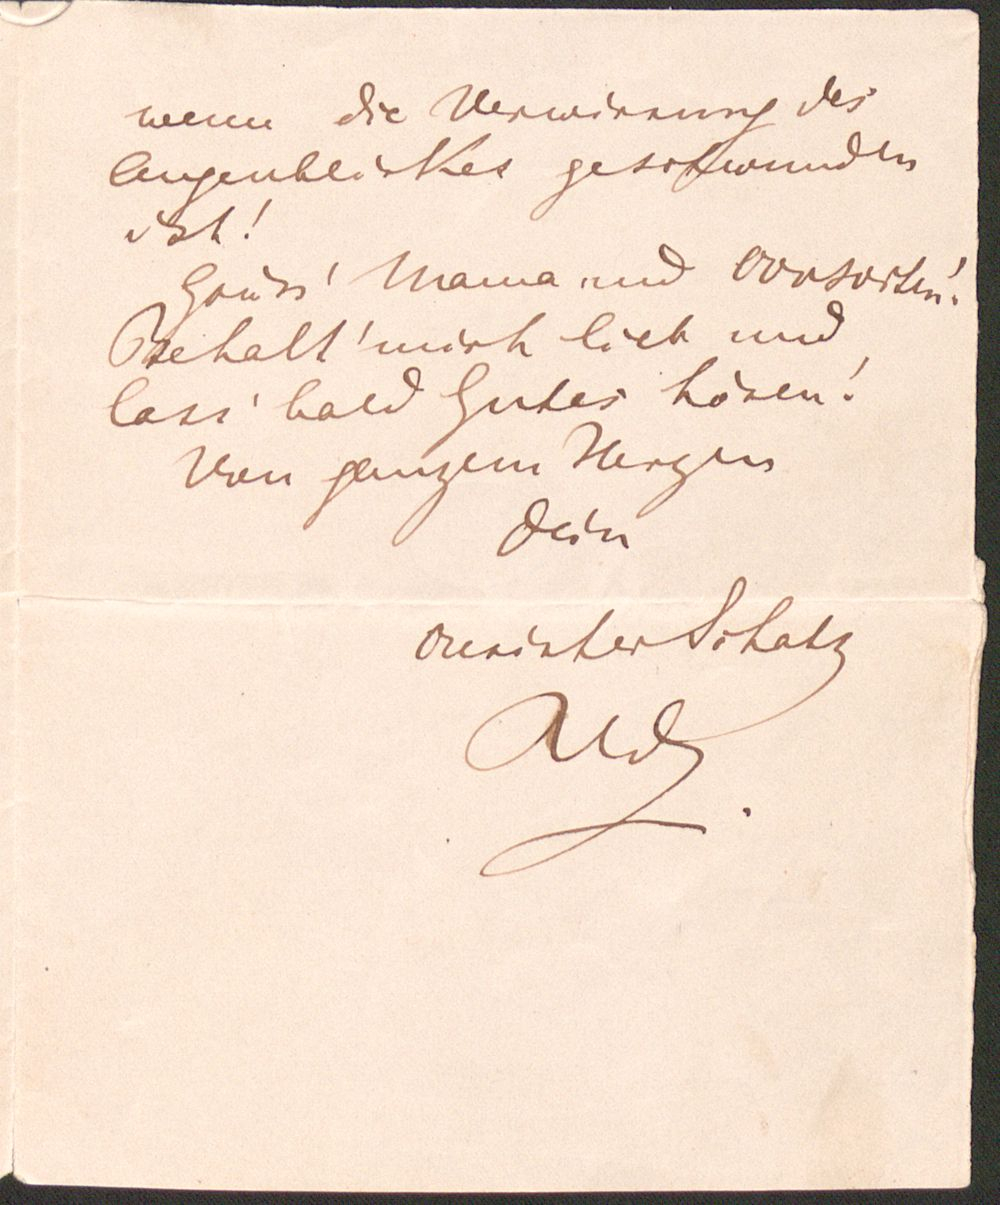 wenn die Verwirrung des
Augenblickes geschwunden
ist!
Grüss' Mama und
Behalt' mich lieb und
lass' bald Gutes hören!
Von ganzem Herzen
Dein
Schatz